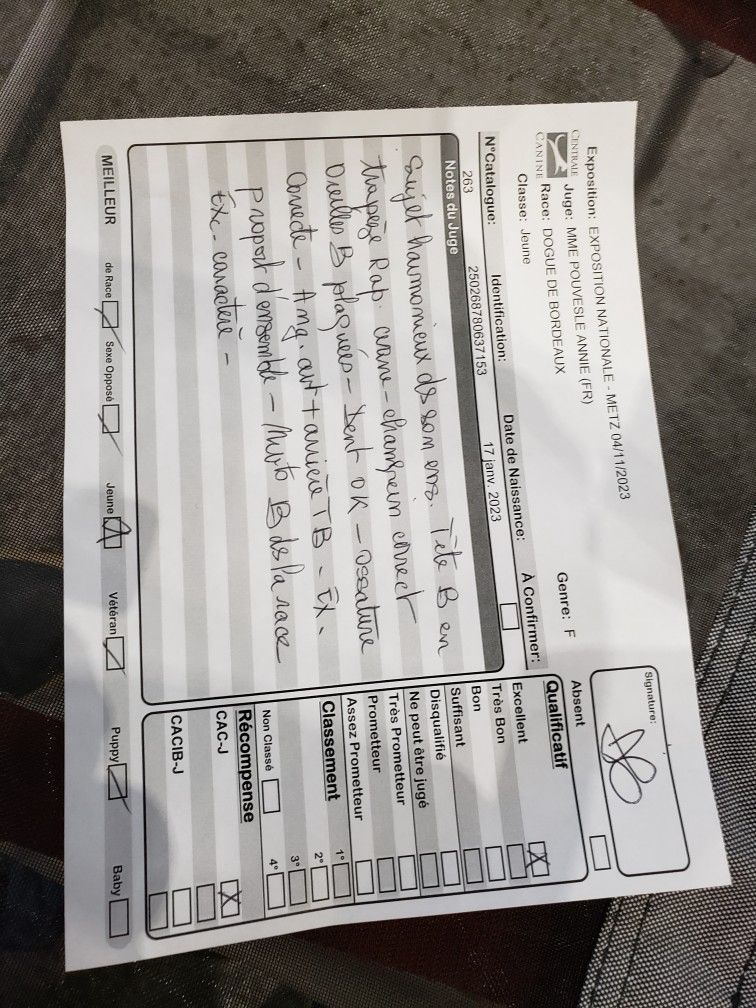 Exposition: EXPOSITION NATIONALE - METZ 04/11/2023
CENTRALE CANINE
Juge: MME POUVESLE ANNIE (FR)
Race: DOGUE DE BORDEAUX
Classe: Jeune
Genre: F
Signature:
N°Catalogue: Identification: Date de Naissance: À Confirmer:
263 250268780637153 17 janv. 2023
Notes du Juge
Sujet harmonieux ds son ens. Tête B en
trapèze Rap. crane - chanfrein correct
Oreilles B plaquées - Dent OK - ossature
Correcte - Ang. avt + arrière TB - Ex.
proport d'ensemble - B de la race
Exc. caractère -
Absent
Qualificatif
Excellent
Très Bon
Bon
Suffisant
Disqualifié
Ne peut être jugé
Très Prometteur
Prometteur
Assez Prometteur
Classement
1° 2°
Non Classé 3° 4°
Récompense
CAC-J
CACIB-J
MEILLEUR de Race Sexe Opposé Jeune Vétéran Puppy Baby